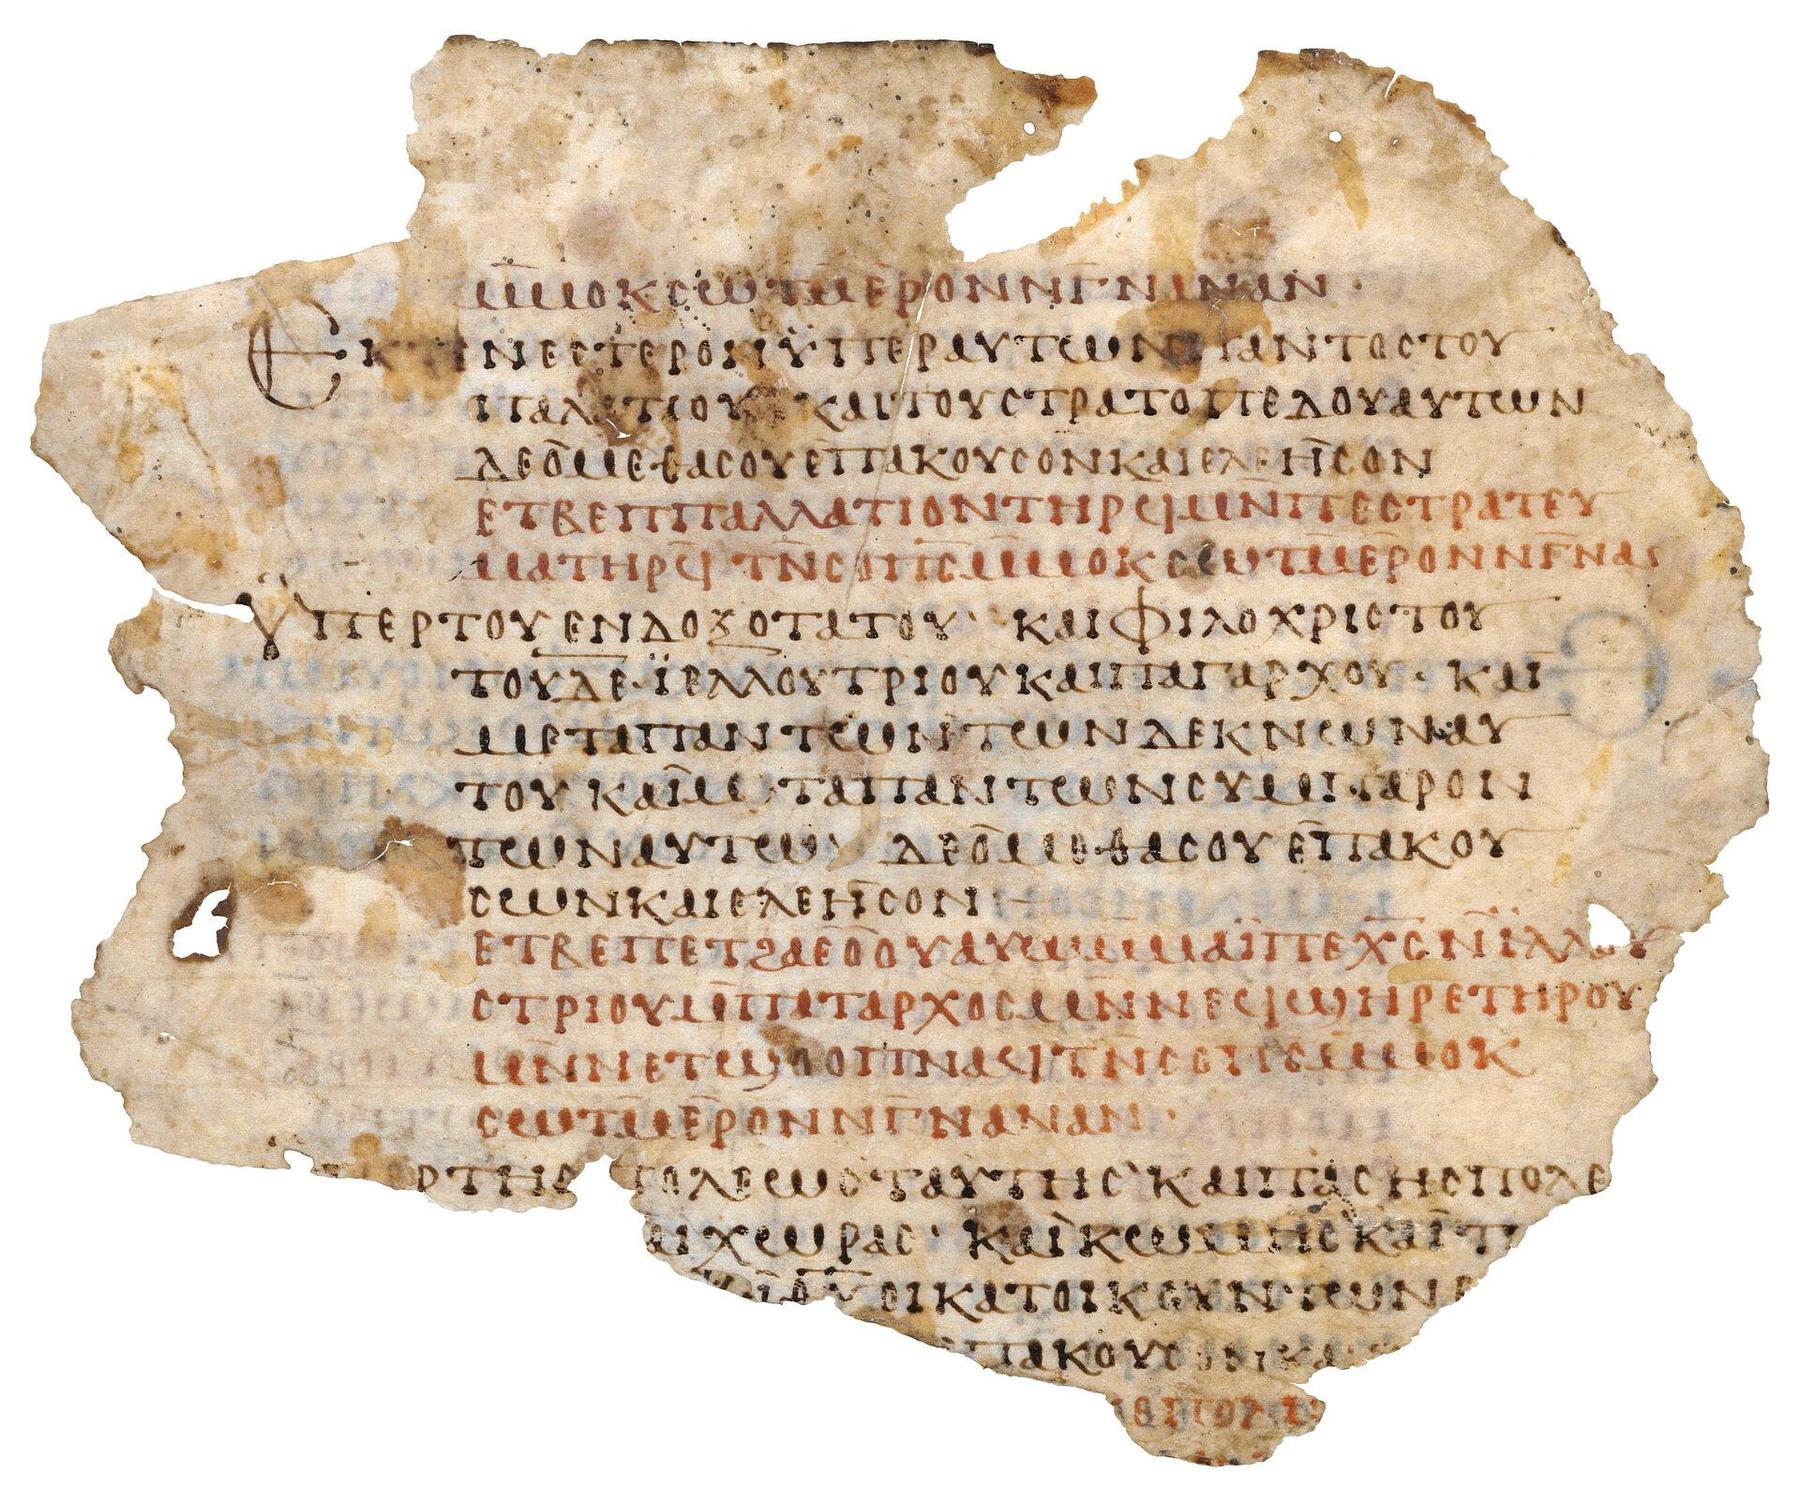 ⲙ̅ⲙⲟⲕⲥⲱⲧⲙ̅ⲉ̅ⲣⲟⲛⲛⲛⲅ̅ⲛⲁⲛⲁⲛ ·
ⲛⲉⲥⲧⲉⲣⲟⲛ ⲩ̈ⲡⲉⲣⲁⲩⲧⲱⲛ ⲡⲁⲛⲧⲟⲥⲧⲟⲩ
ⲡⲁⲗⲁⲧⲓⲟⲩ ⲕⲁⲓⲧⲟⲩⲥⲧⲣⲁⲧⲟⲡⲉⲇⲟⲩⲁⲩⲧⲱⲛ
ⲇⲉⲟ̅ⲙⲉⲑⲁⲥⲟⲩⲉ̅ⲡⲁⲕⲟⲩⲥⲟⲛⲕⲁⲓⲉⲗⲉⲏ̅ⲥⲟⲛ
ⲉⲧⲃⲉⲡⲡⲁⲗⲗⲁⲧⲓⲟⲛⲧⲏⲣϥⲙⲛ̅ⲡⲉⲥⲧⲣⲁⲧⲉⲩ
ⲙⲁⲧⲏⲣϥ̅ ⲧⲛ̅ⲥⲟⲡⲥ̅ⲙ̅ⲙⲟⲕⲥⲱⲧⲙ̅ⲉ̅ⲣⲟⲛⲛⲅ̅ⲛⲁ
ⲩⲡⲉⲣⲧⲟⲩⲉⲛⲇⲟⲝⲟⲧⲁⲧⲟⲩ · ⲕⲁⲓⲫⲓⲗⲟⲭⲣⲓⲥⲧⲟⲩ
ⲧⲟⲩⲇⲉ·ⲓ̈ⲉⲗⲗⲟⲩⲧⲣⲓⲟⲩⲕⲁⲓⲡⲁⲅⲁⲣⲭⲟⲩ · ⲕⲁⲓ
ⲙⲉⲧⲁⲡⲁⲛⲧⲱⲛⲧⲱⲛⲇⲉⲕⲛⲱⲛⲁⲩ
ⲧⲟⲩⲕⲁⲓ̅ⲙⲉⲧⲁⲡⲁⲛⲧⲱⲛⲥⲩⲙⲡⲁⲣⲟⲛ
ⲧⲱⲛⲁⲩⲧⲱⲛ ⲇⲉⲟ̅ⲙⲉⲑⲁⲥⲟⲩⲉ̅ⲡⲁⲕⲟⲩ
ⲥⲱⲛⲕⲁⲓⲉⲗⲉⲏ̅ⲥⲟⲛ
ⲉⲧⲃⲉⲡⲉⲧϩⲁⲉⲟ̅ⲟⲩⲁⲩⲱⲙ̅ⲙⲁⲓ̈ⲡⲉⲭ̅ⲥ̅ⲛ̅ⲓ̈ⲗⲗⲟⲩ
ⲥⲧⲣⲓⲟⲩⲙ̅ⲡⲁⲅⲁⲣⲭⲟⲥⲙⲛ̅ⲛⲉϥϣⲏⲣⲉⲧⲏⲣⲟⲩ
ⲙⲛ̅ⲛⲉⲧϣⲟⲟⲡⲛⲁϥⲧⲛ̅ⲥⲟⲡⲥ̅ⲙ̅ⲙⲟⲕ
ⲥⲱⲧⲙ̅ⲉ̅ⲣⲟⲛⲛⲅ̅ⲛⲁⲛⲁⲛ ·
ⲣⲧⲏⲥ ⲡⲟⲗⲉⲱⲥⲧⲁⲩⲧⲏⲥ ⲕⲁⲓⲡⲁⲥⲏⲥⲡⲟⲗⲉ
ⲭⲱⲣⲁⲥ · ⲕⲁⲓⲕⲱⲙⲏⲥⲕⲁⲓⲧ
ⲟⲓⲕⲁⲧⲟⲓⲕⲟⲩⲛⲧⲱⲛ
ⲡⲁⲕⲟⲩⲥⲟⲛⲕⲁ